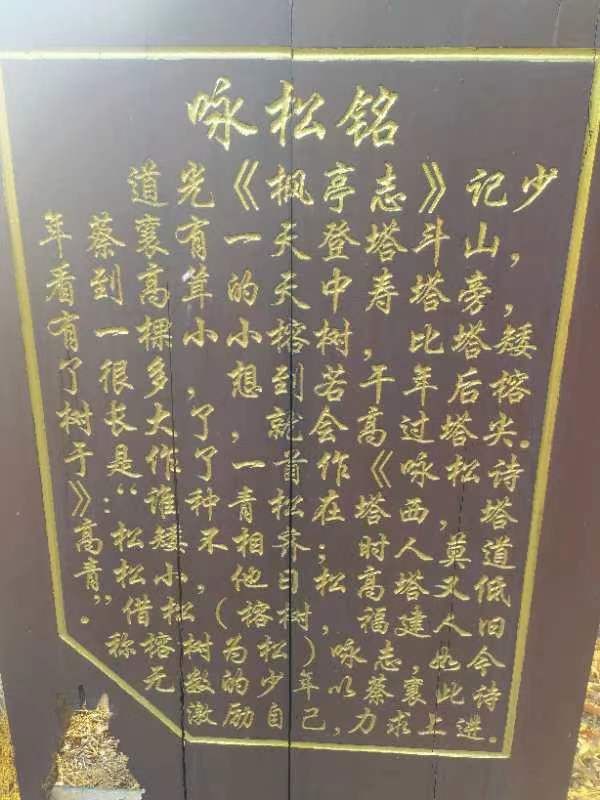 咏松铭
道光《枫亭志》记少
年蔡襄有一天登塔斗山，
看到高耸的天中寿塔旁，
有一棵小小榕树，比塔矮
了很多，想到若干年后榕
树长大了就会高过塔尖。
于是作了一首《咏松诗
》：“谁种青松在塔西，塔
高松矮不相齐；时人莫道
青松小，他日松高塔又低
”。借松（榕树，福建人旧
称榕树为松）咏志，如今
无数的少年以蔡襄此诗
激励自己，力求上进。